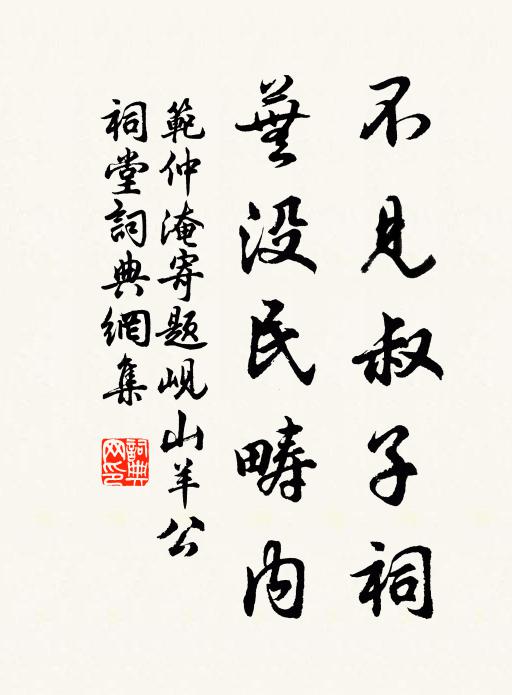 不見叔子祠
蕪没民疇内
範仲淹寄題峴山羊公
祠堂詞典網集
詞典
网印